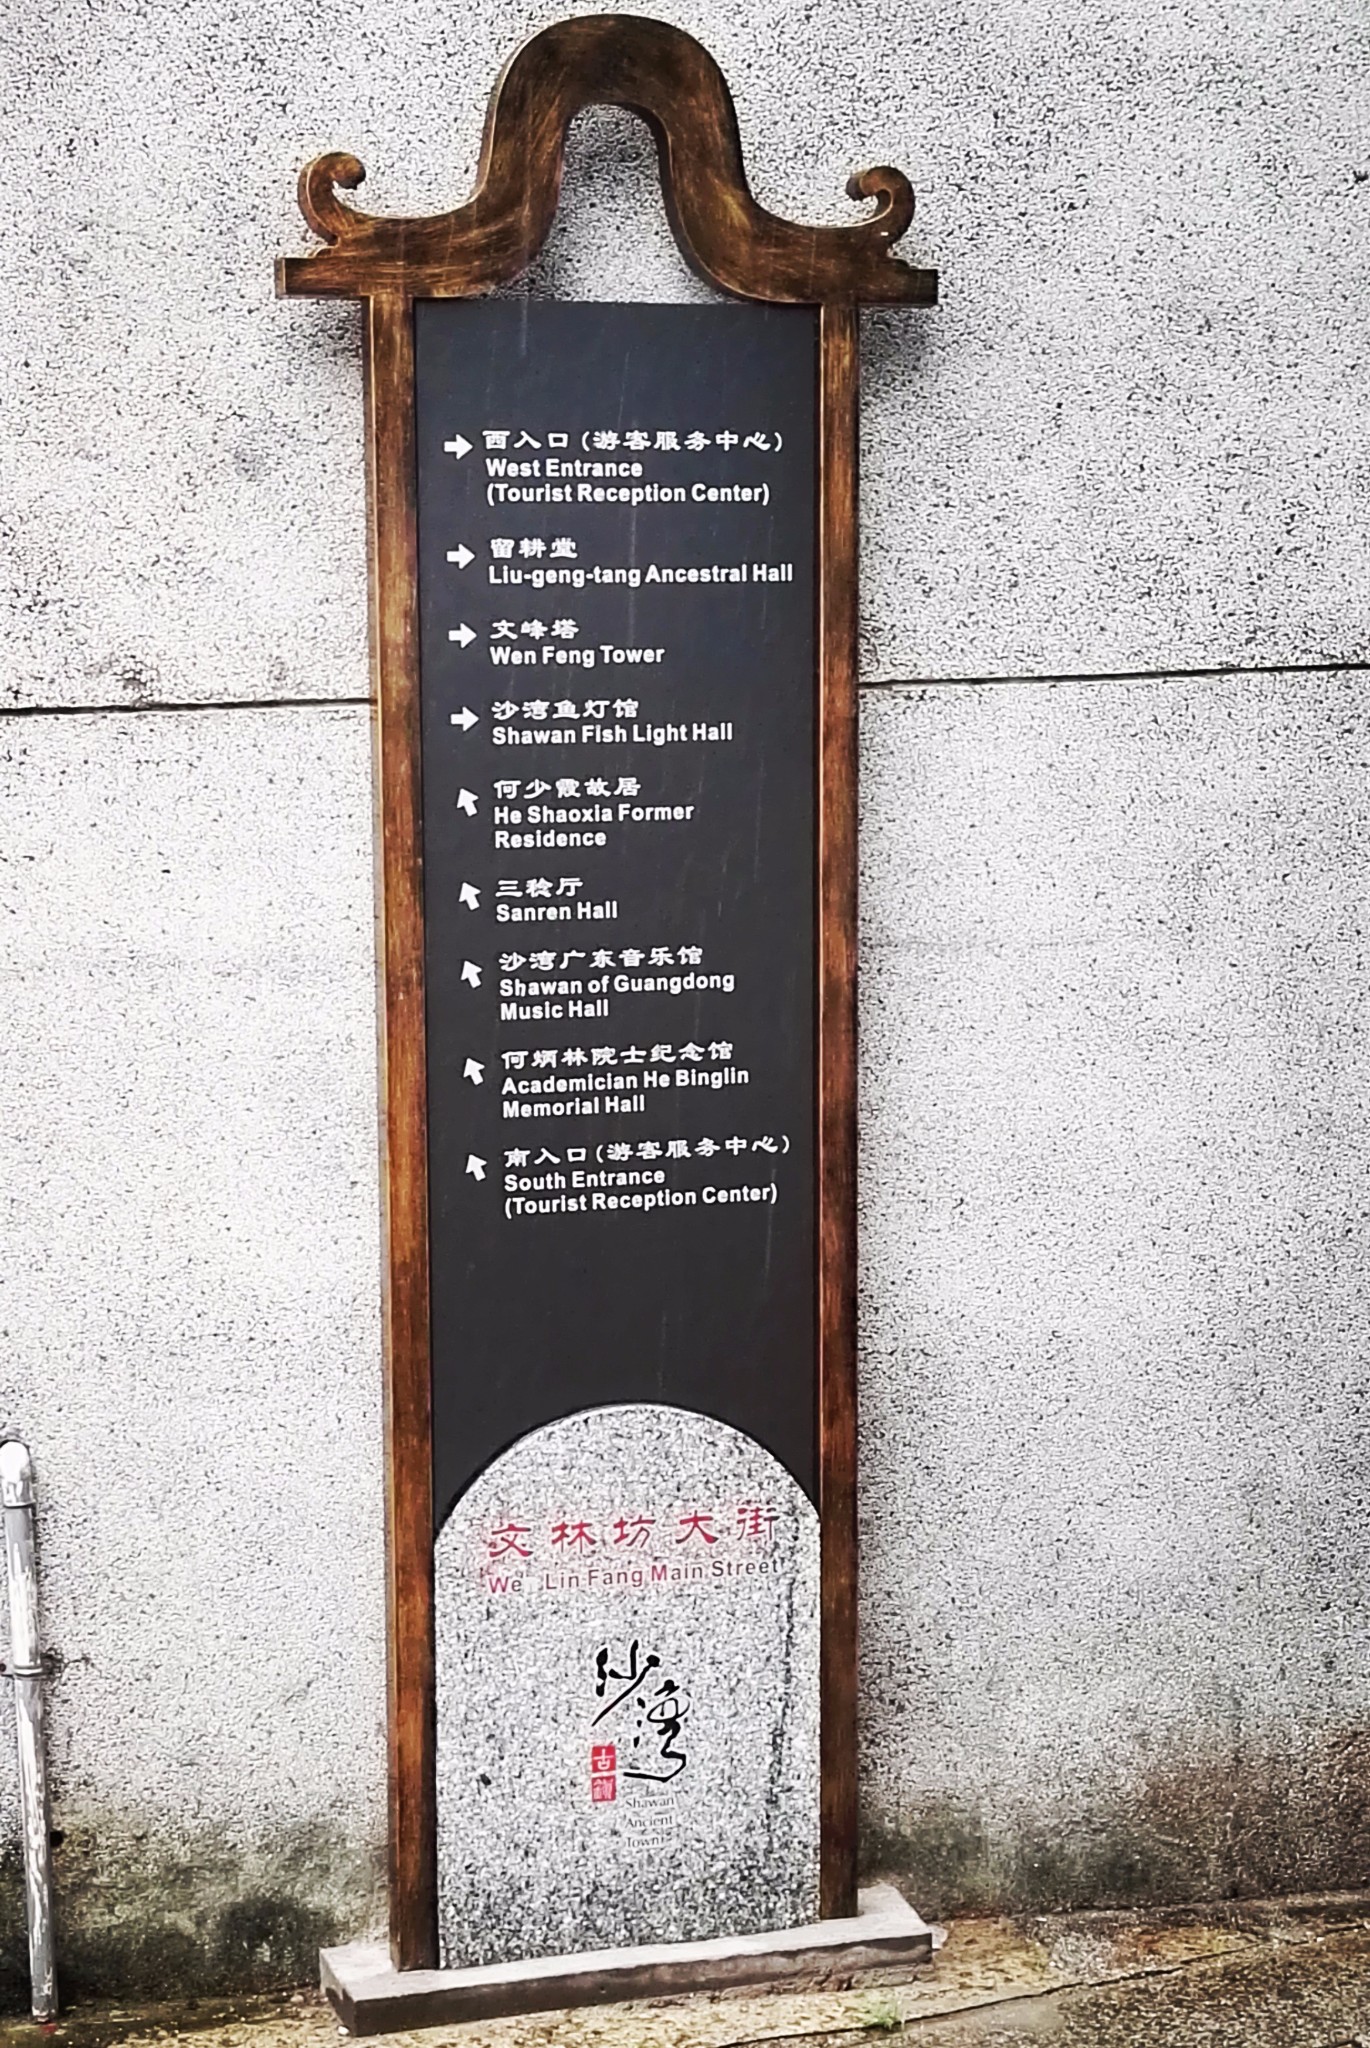 西入口(游客服务中心)
West Entrance
(Tourist Reception Center)
留耕堂
Liu-geng-tang Ancestral Hall
文峰塔
Wen Feng Tower
沙湾鱼灯馆
Shawan Fish Light Hall
何少霞故居
He Shaoxia Former
Residence
三稔厅
Sanren Hall
沙湾广东音乐馆
Shawan of Guangdong
Music Hall
何炳林院士纪念馆
Academician He Binglin
Memorial Hall
南入口(游客服务中心)
South Entrance
(Tourist Reception Center)
文林坊大街
We Lin Fang Main Street
沙湾
古
Shawan
Ancient
Town